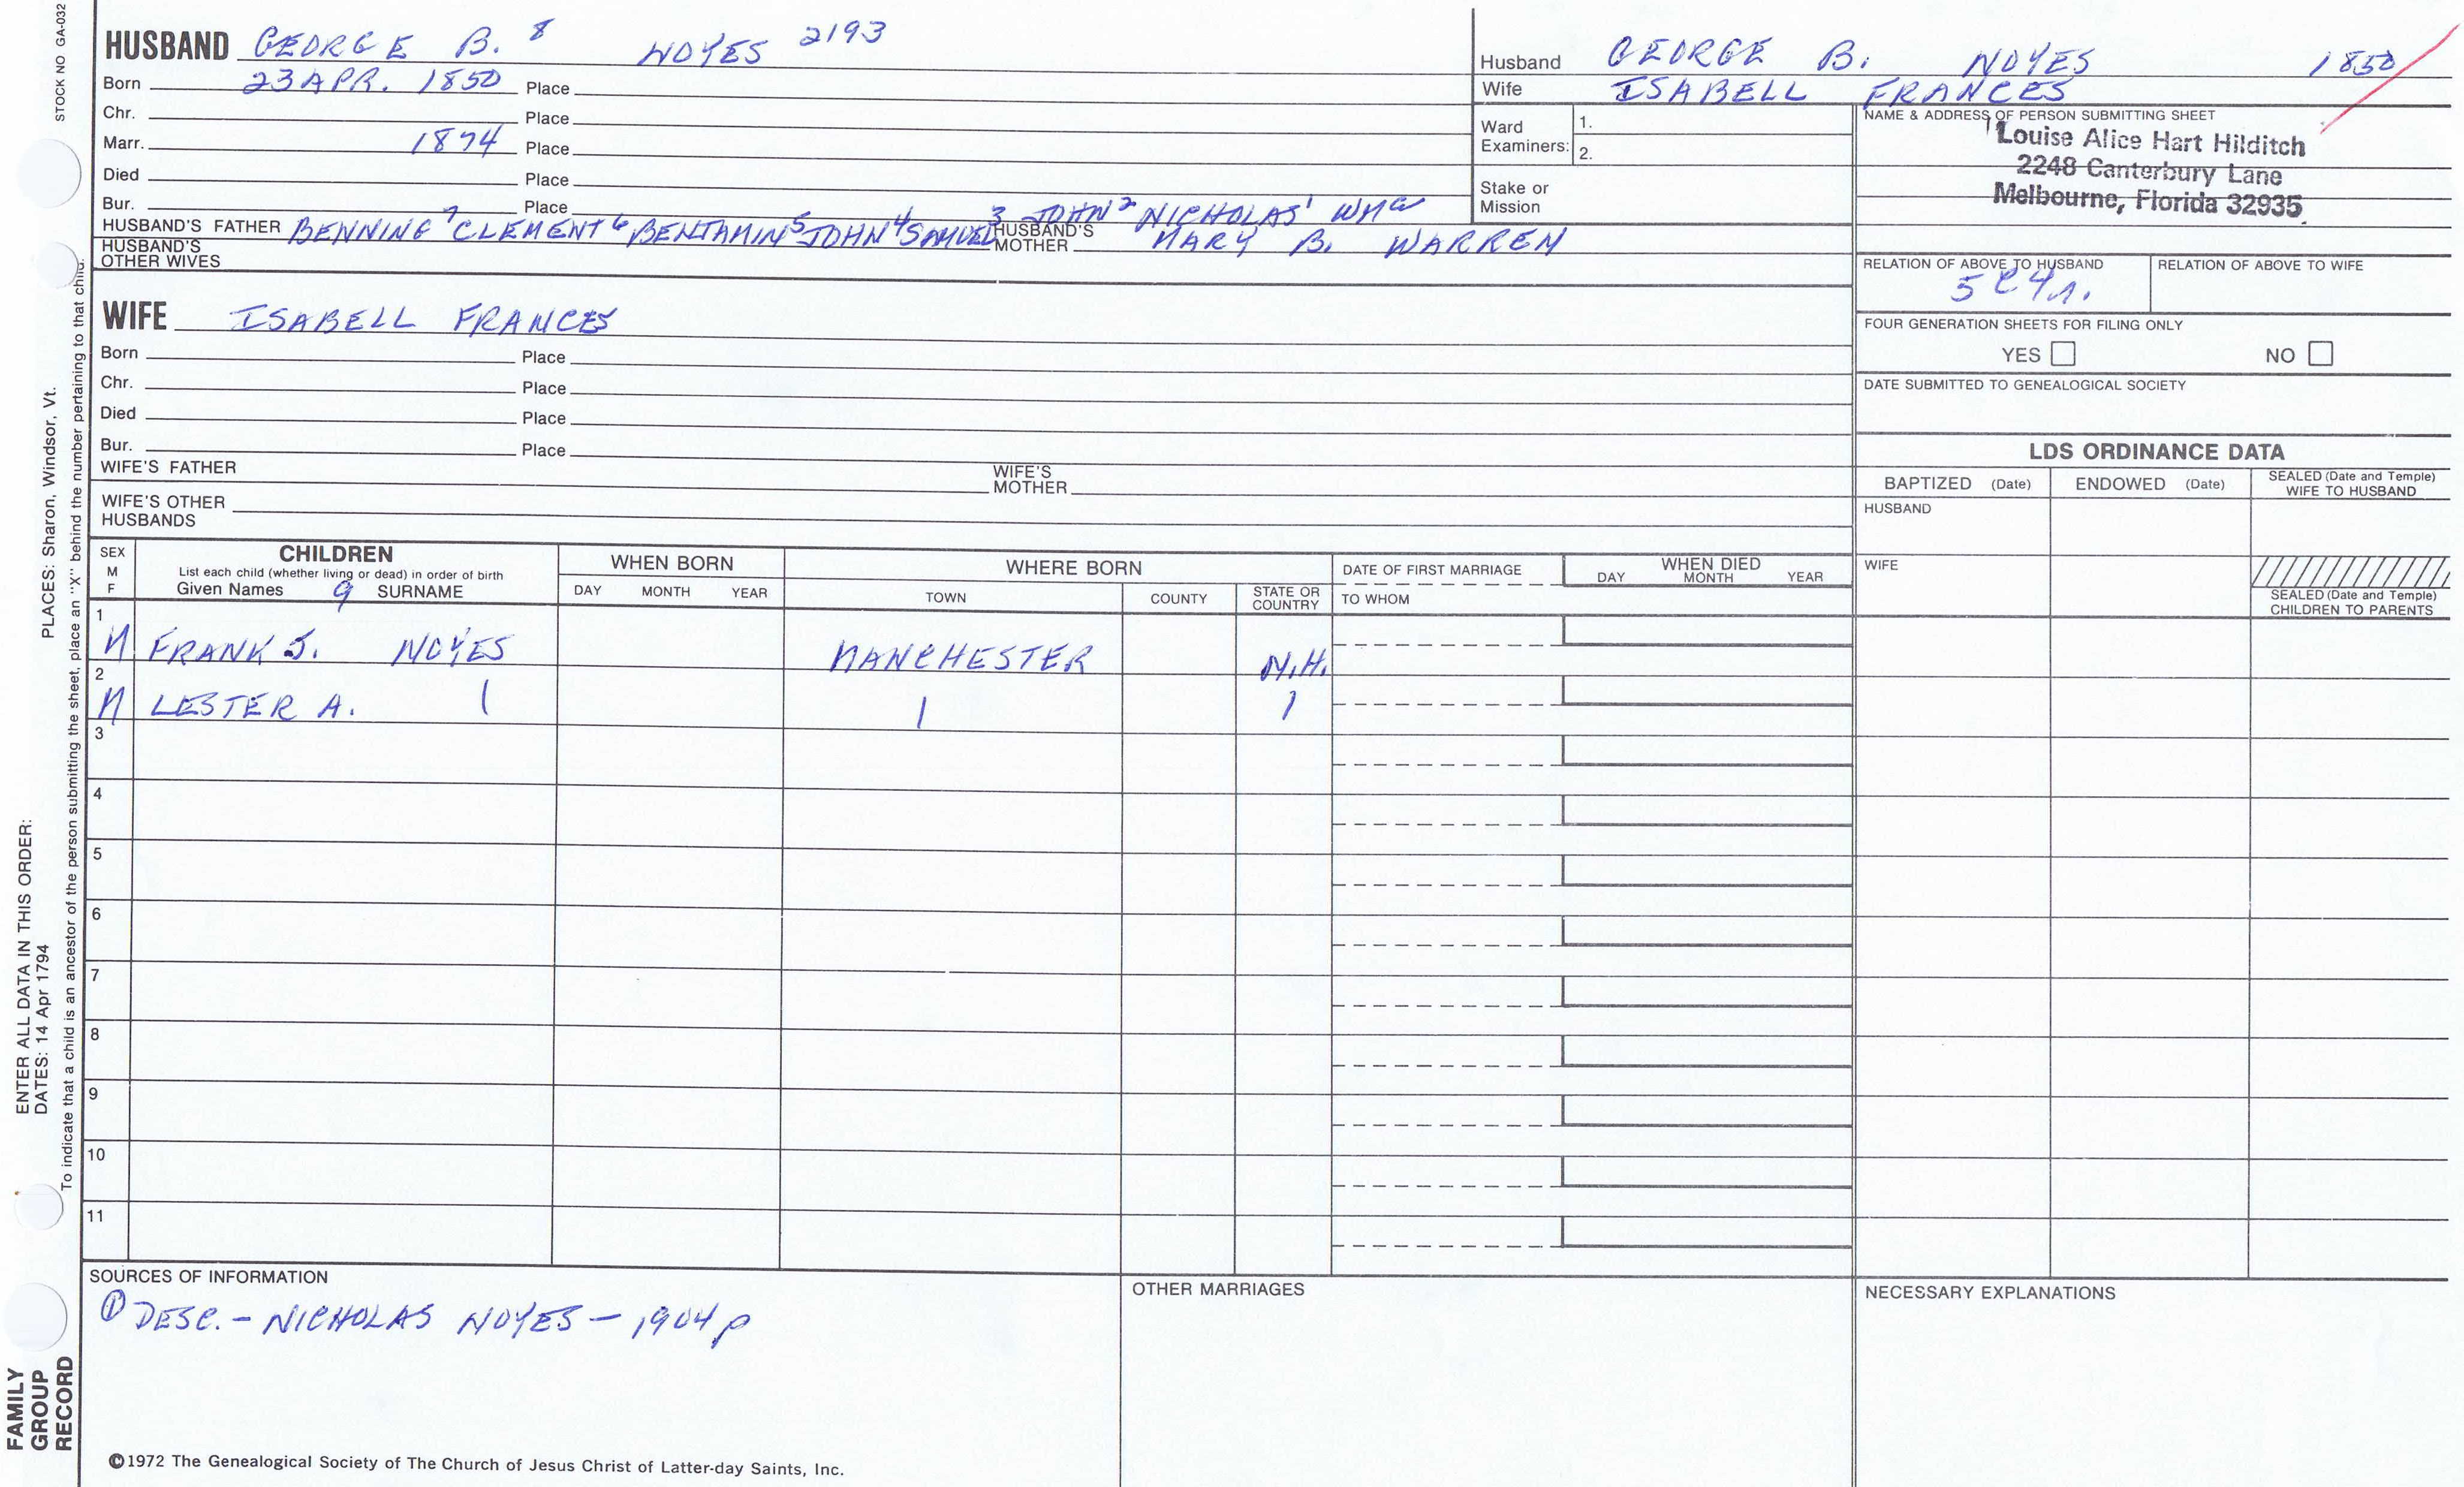 STOCK NO GA-032
HUSBAND GEORGE B. 8 NOYES 2193
Born 23 APR. 1850 Place
Chr. Place
Marr. 1874 Place
Died Place
Bur. Place
3 JOHN 2 NICHOLAS 1 WM a
HUSBAND'S FATHER BENNING 7 CLEMENT 6 BENJAMIN 5 JOHN 4 SAMUEL HUSBAND'S MOTHER MARY B. WARREN
HUSBAND'S OTHER WIVES
Husband GEORGE B. NOYES 1850
Wife ISABELL FRANCES
Ward Examiners: 1.
2.
Stake or Mission
NAME & ADDRESS OF PERSON SUBMITTING SHEET
Louise Alice Hart Hilditch
2248 Canterbury Lane
Melbourne, Florida 32935
RELATION OF ABOVE TO HUSBAND RELATION OF ABOVE TO WIFE
5C4r.
FOUR GENERATION SHEETS FOR FILING ONLY
YES NO
DATE SUBMITTED TO GENEALOGICAL SOCIETY
WIFE ISABELL FRANCES
Born Place
Chr. Place
Died Place
Bur. Place
WIFE'S FATHER WIFE'S MOTHER
WIFE'S OTHER HUSBANDS
LDS ORDINANCE DATA
BAPTIZED (Date) ENDOWED (Date) SEALED (Date and Temple) WIFE TO HUSBAND
HUSBAND
WIFE
SEALED (Date and Temple) CHILDREN TO PARENTS
SEX M F
CHILDREN
List each child (whether living or dead) in order of birth
Given Names 9 SURNAME
WHEN BORN
DAY MONTH YEAR
WHERE BORN
TOWN COUNTY STATE OR COUNTRY
DATE OF FIRST MARRIAGE
TO WHOM
WHEN DIED
DAY MONTH YEAR
1 M FRANK J. NOYES MANCHESTER N.H.
2 M LESTER A. | | |
3
4
5
6
7
8
9
10
11
SOURCES OF INFORMATION
① DESC. - NICHOLAS NOYES - 1904 p
OTHER MARRIAGES
NECESSARY EXPLANATIONS
©1972 The Genealogical Society of The Church of Jesus Christ of Latter-day Saints, Inc.
FAMILY GROUP RECORD
ENTER ALL DATA IN THIS ORDER:
DATES: 14 Apr 1794 PLACES: Sharon, Windsor, Vt.
To indicate that a child is an ancestor of the person submitting the sheet, place an "X" behind the number pertaining to that child.